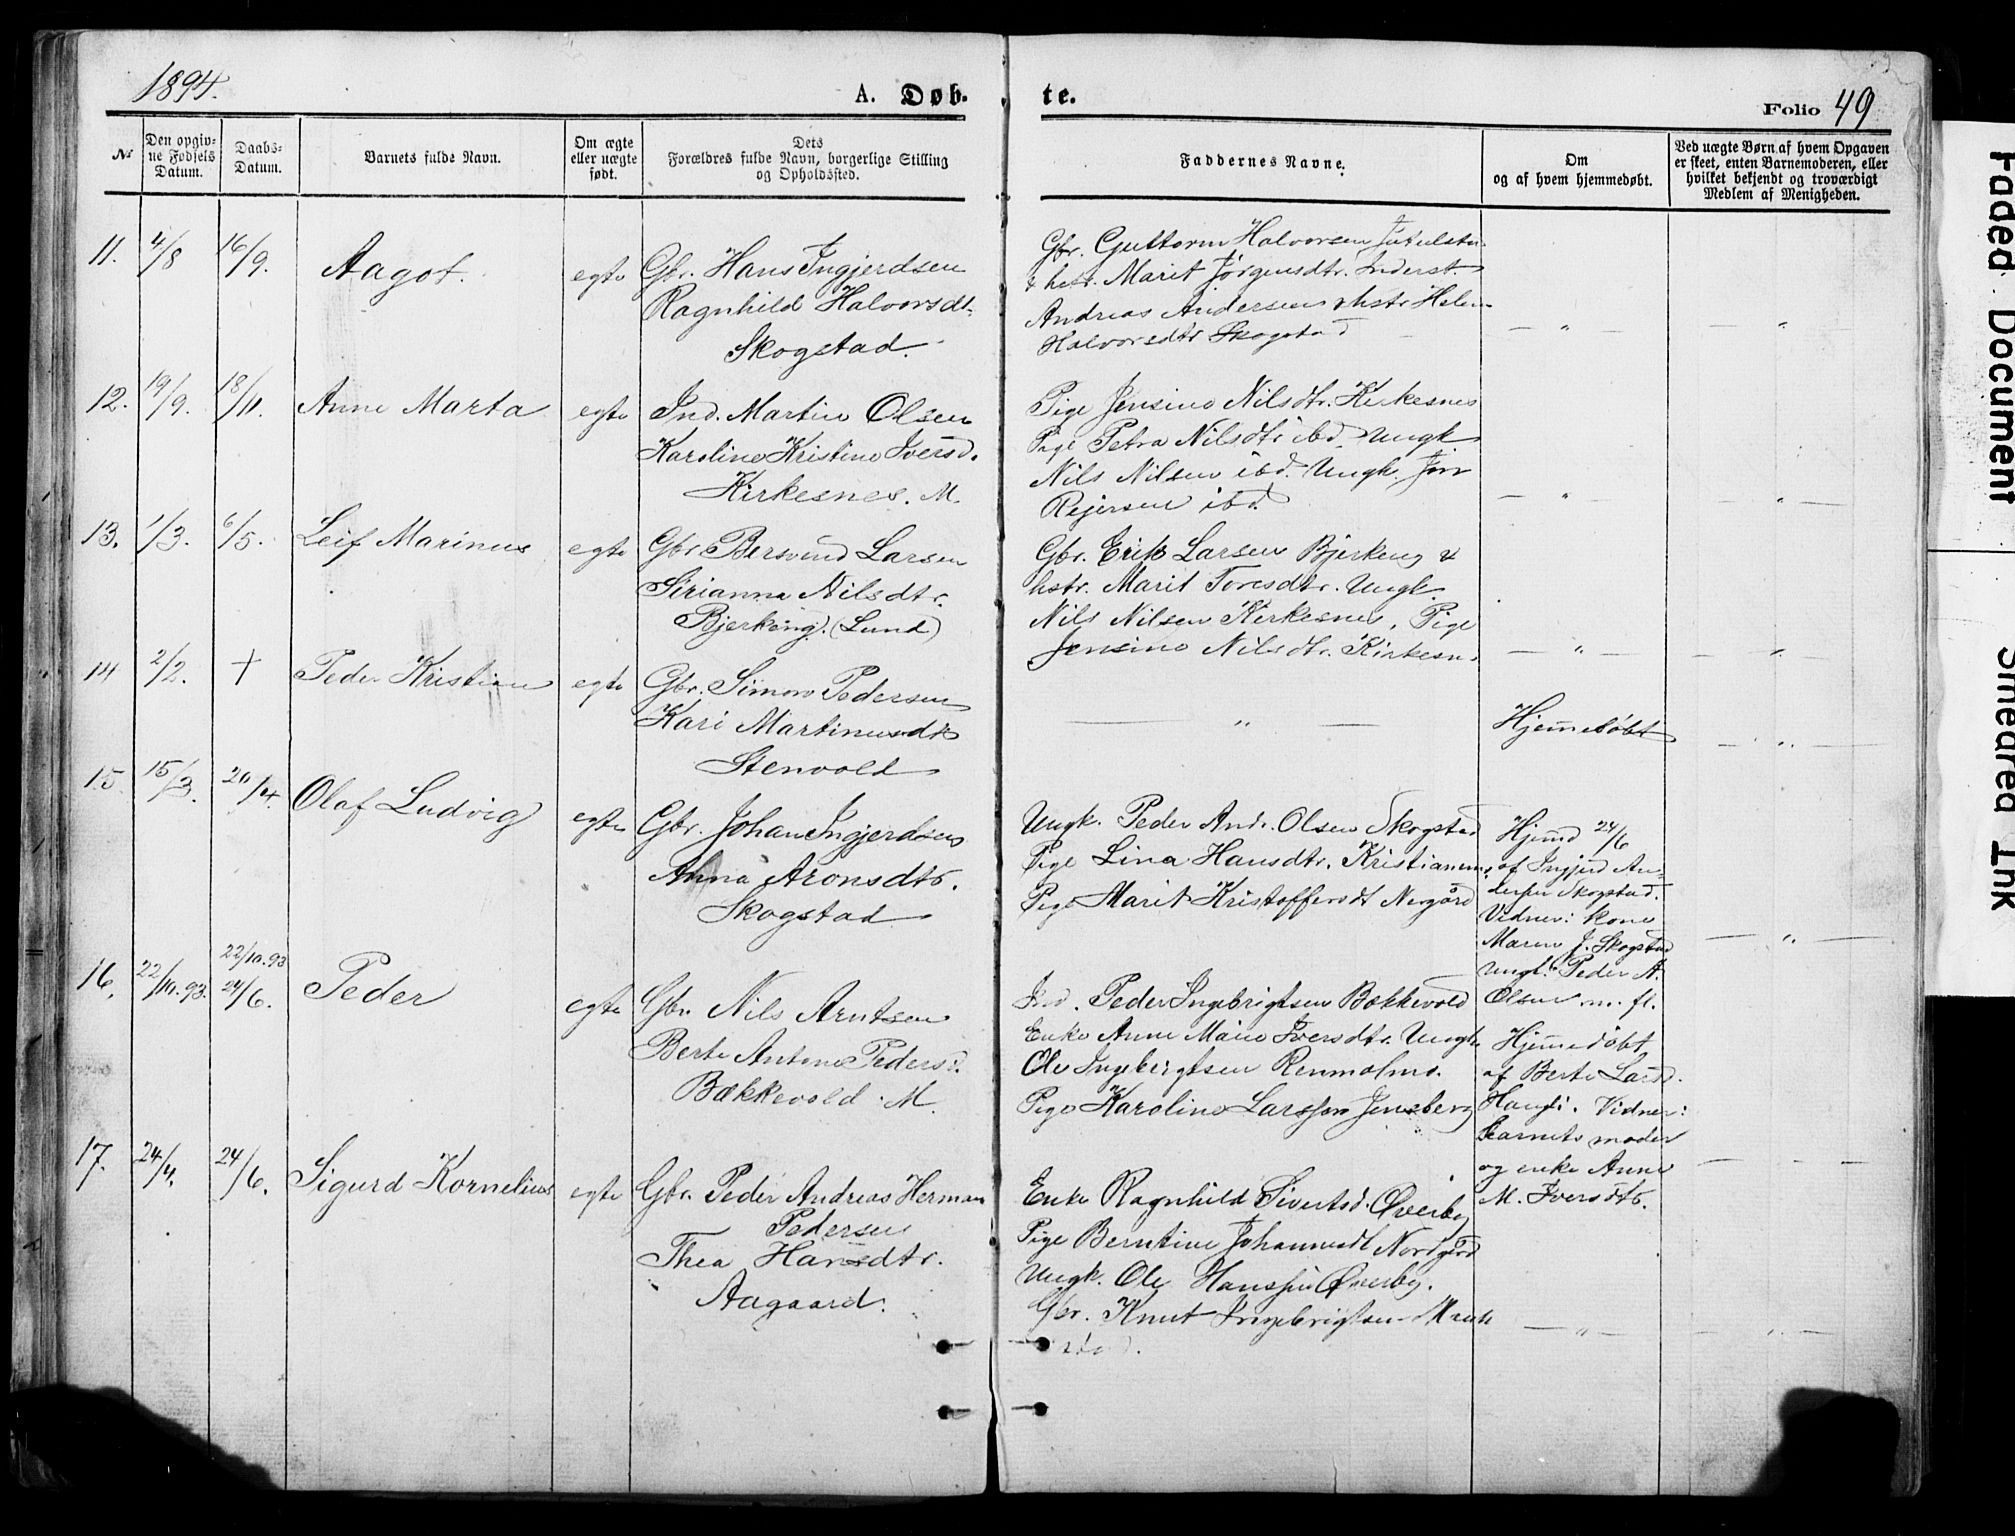 1894.
A. Døb-
te.
Folio 49
No
Den opgiv-
ne Fødsels
Datum.
Daabs-
Datum.
Barnets fulde Navn.
Om ægte
eller uægte
født.
Dets
Forældres fulde Navn, borgerlige Stilling
og Opholdssted.
Faddernes Navne.
Om
og af hvem hjemmedøbt.
Ved uægte Børn af hvem Opgaven
er skeet, enten Barnemoderen, eller
hvilket bekjendt og troværdigt
Medlem af Menigheden.
11. 4/8 16/9. Aagot. egte
Gbr. Hans Ingjerdsen
Ragnhild Halvorsdt.
Skogstad.
Gbr. Guttorm Halvorsen
& hstr. Marit Jørgensdtr. Inderst.
Andreas Andersen & hstr. Helen
Halvorsdtr Skogstad
— " — — " —
12. 19/9. 18/11. Anne Marta egte
Ind. Martin Olsen
Karoline Kristine Iversd.
Kirkesnes. M.
Pige Jensine Nilsdtr. Kirkesnes
Pige Petra Nilsdtr ibd. Ungk.
Nils Nilsen ibd. Ungk. Jon
Rejersen ibd.
— " — "
13. 1/3. 6/5. Leif Marinus egte
Gbr. Bersvend Larsen
Sirianna Nilsdtr.
Bjerkeng. (Lund)
Gbr. Erik Larsen Bjerkeng &
hstr. Marit Toresdtr. Ungk.
Nils Nilsen Kirkesnes, Pige
Jensine Nilsdtr. Kirkesn.
— " — "
14 2/2. + Peder Kristian egte
Gbr. Simon Pedersen
Kari Martinusdtr
Stenvold
— " —
Hjemmedøbt
— " —
15. 15/3. 20/4. Olaf Ludvig egte
Gbr. Johan Ingjerdsen
Anna Aronsdtr.
Skogstad
Ungk. Peder And. Olsen Skogstad
Pige Lina Hansdtr.
Pige Marit Kristoffersdt Nergård
Hjemd 24/6
af Ingjerd An-
dersen Skogstad.
Vidner: kone
Maren J. Skogstad
Ungk. Peder A.
Olsen m. fl.
— " —
16. 22/10.93. 22/10.93
24/6. Peder egte
Gbr. Nils Arntsen
Berte Antone Pedersd.
Bækkevold. M.
Ind. Peder Ingebrigtsen Bækkevold
Enke Anne Marie Iversdtr. Ungk.
Ole Ingebrigtsen Renmolmo.
Pige Karoline Larssen Jensberg
Hjemmedøbt
af Berte Larsd.
Haugli. Vidner:
barnets moder
og enke Anne
M. Iversdtr.
17. 24/4. 24/6. Sigurd Kornelius egte
Gbr. Peder Andreas Herman
Pedersen
Thea Hansdtr.
Aagaard.
Enke Ragnhild Sivertsd. Øverby
Pige Berntine Johannesdt Nordgård
Ungk. Ole Hanssen Øverby.
Gbr. Knut Ingebrigtsen
— " — — " —
Faded Document
Smeared Ink